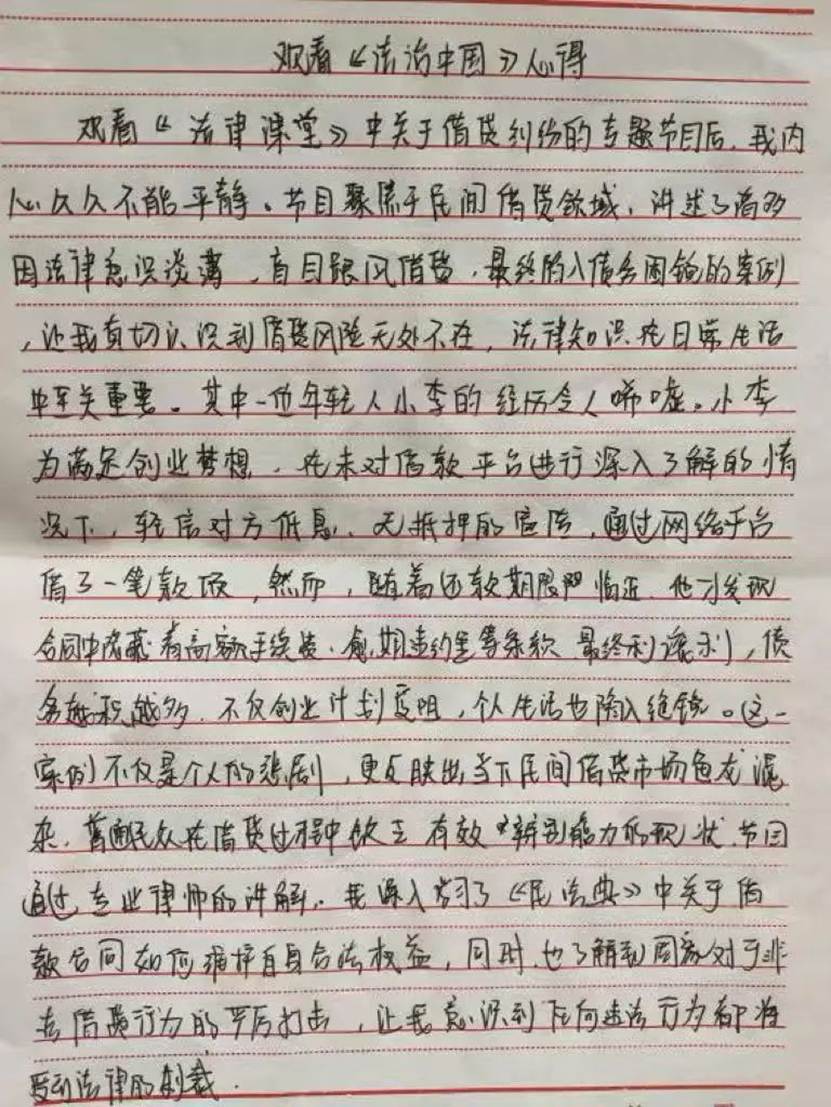 观看《法治中国》心得
观看《法律课堂》中关于借贷纠纷的专题节目后，我内
心久久不能平静。节目聚焦于民间借贷领域，讲述了诸多
因法律意识淡薄，盲目跟风借贷，最终陷入债务困境的案例
，让我真切认识到借贷风险无处不在，法律知识在日常生活
中至关重要。其中一位年轻人小李的经历令人唏嘘。小李
为满足创业梦想，在未对借款平台进行深入了解的情
况下，轻信对方低息、无抵押的宣传，通过网络平台
借了一笔款项，然而，随着还款期限临近，他才发现
合同中隐藏着高额手续费、逾期违约金等条款 最终利滚利，债
务越积越多，不仅创业计划受阻，个人生活也陷入绝境。这一
案例不仅是个人的悲剧，更反映出当下民间借贷市场鱼龙混
杂，普通民众在借贷过程中缺乏有效辨别能力的现状。节目
通过专业律师的讲解，我深入学习了《民法典》中关于借
款合同如何维护自身合法权益，同时，也了解到国家对于非
法借贷行为的严厉打击，让我意识到任何违法行为都将
受到法律的制裁．